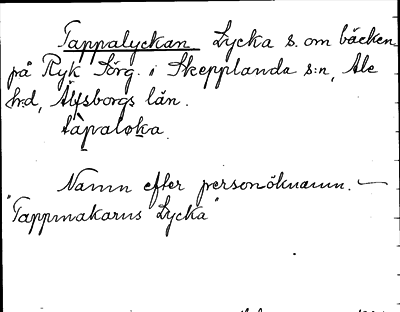 Tappalyckan Lycka s. om bäcken
på Ryk Sörg. i Skepplanda s:n, Ale
h:d, Älfsborgs län.
tàpaloka.
Namn efter personöknamn. —
"Tappmakarns Lycka"